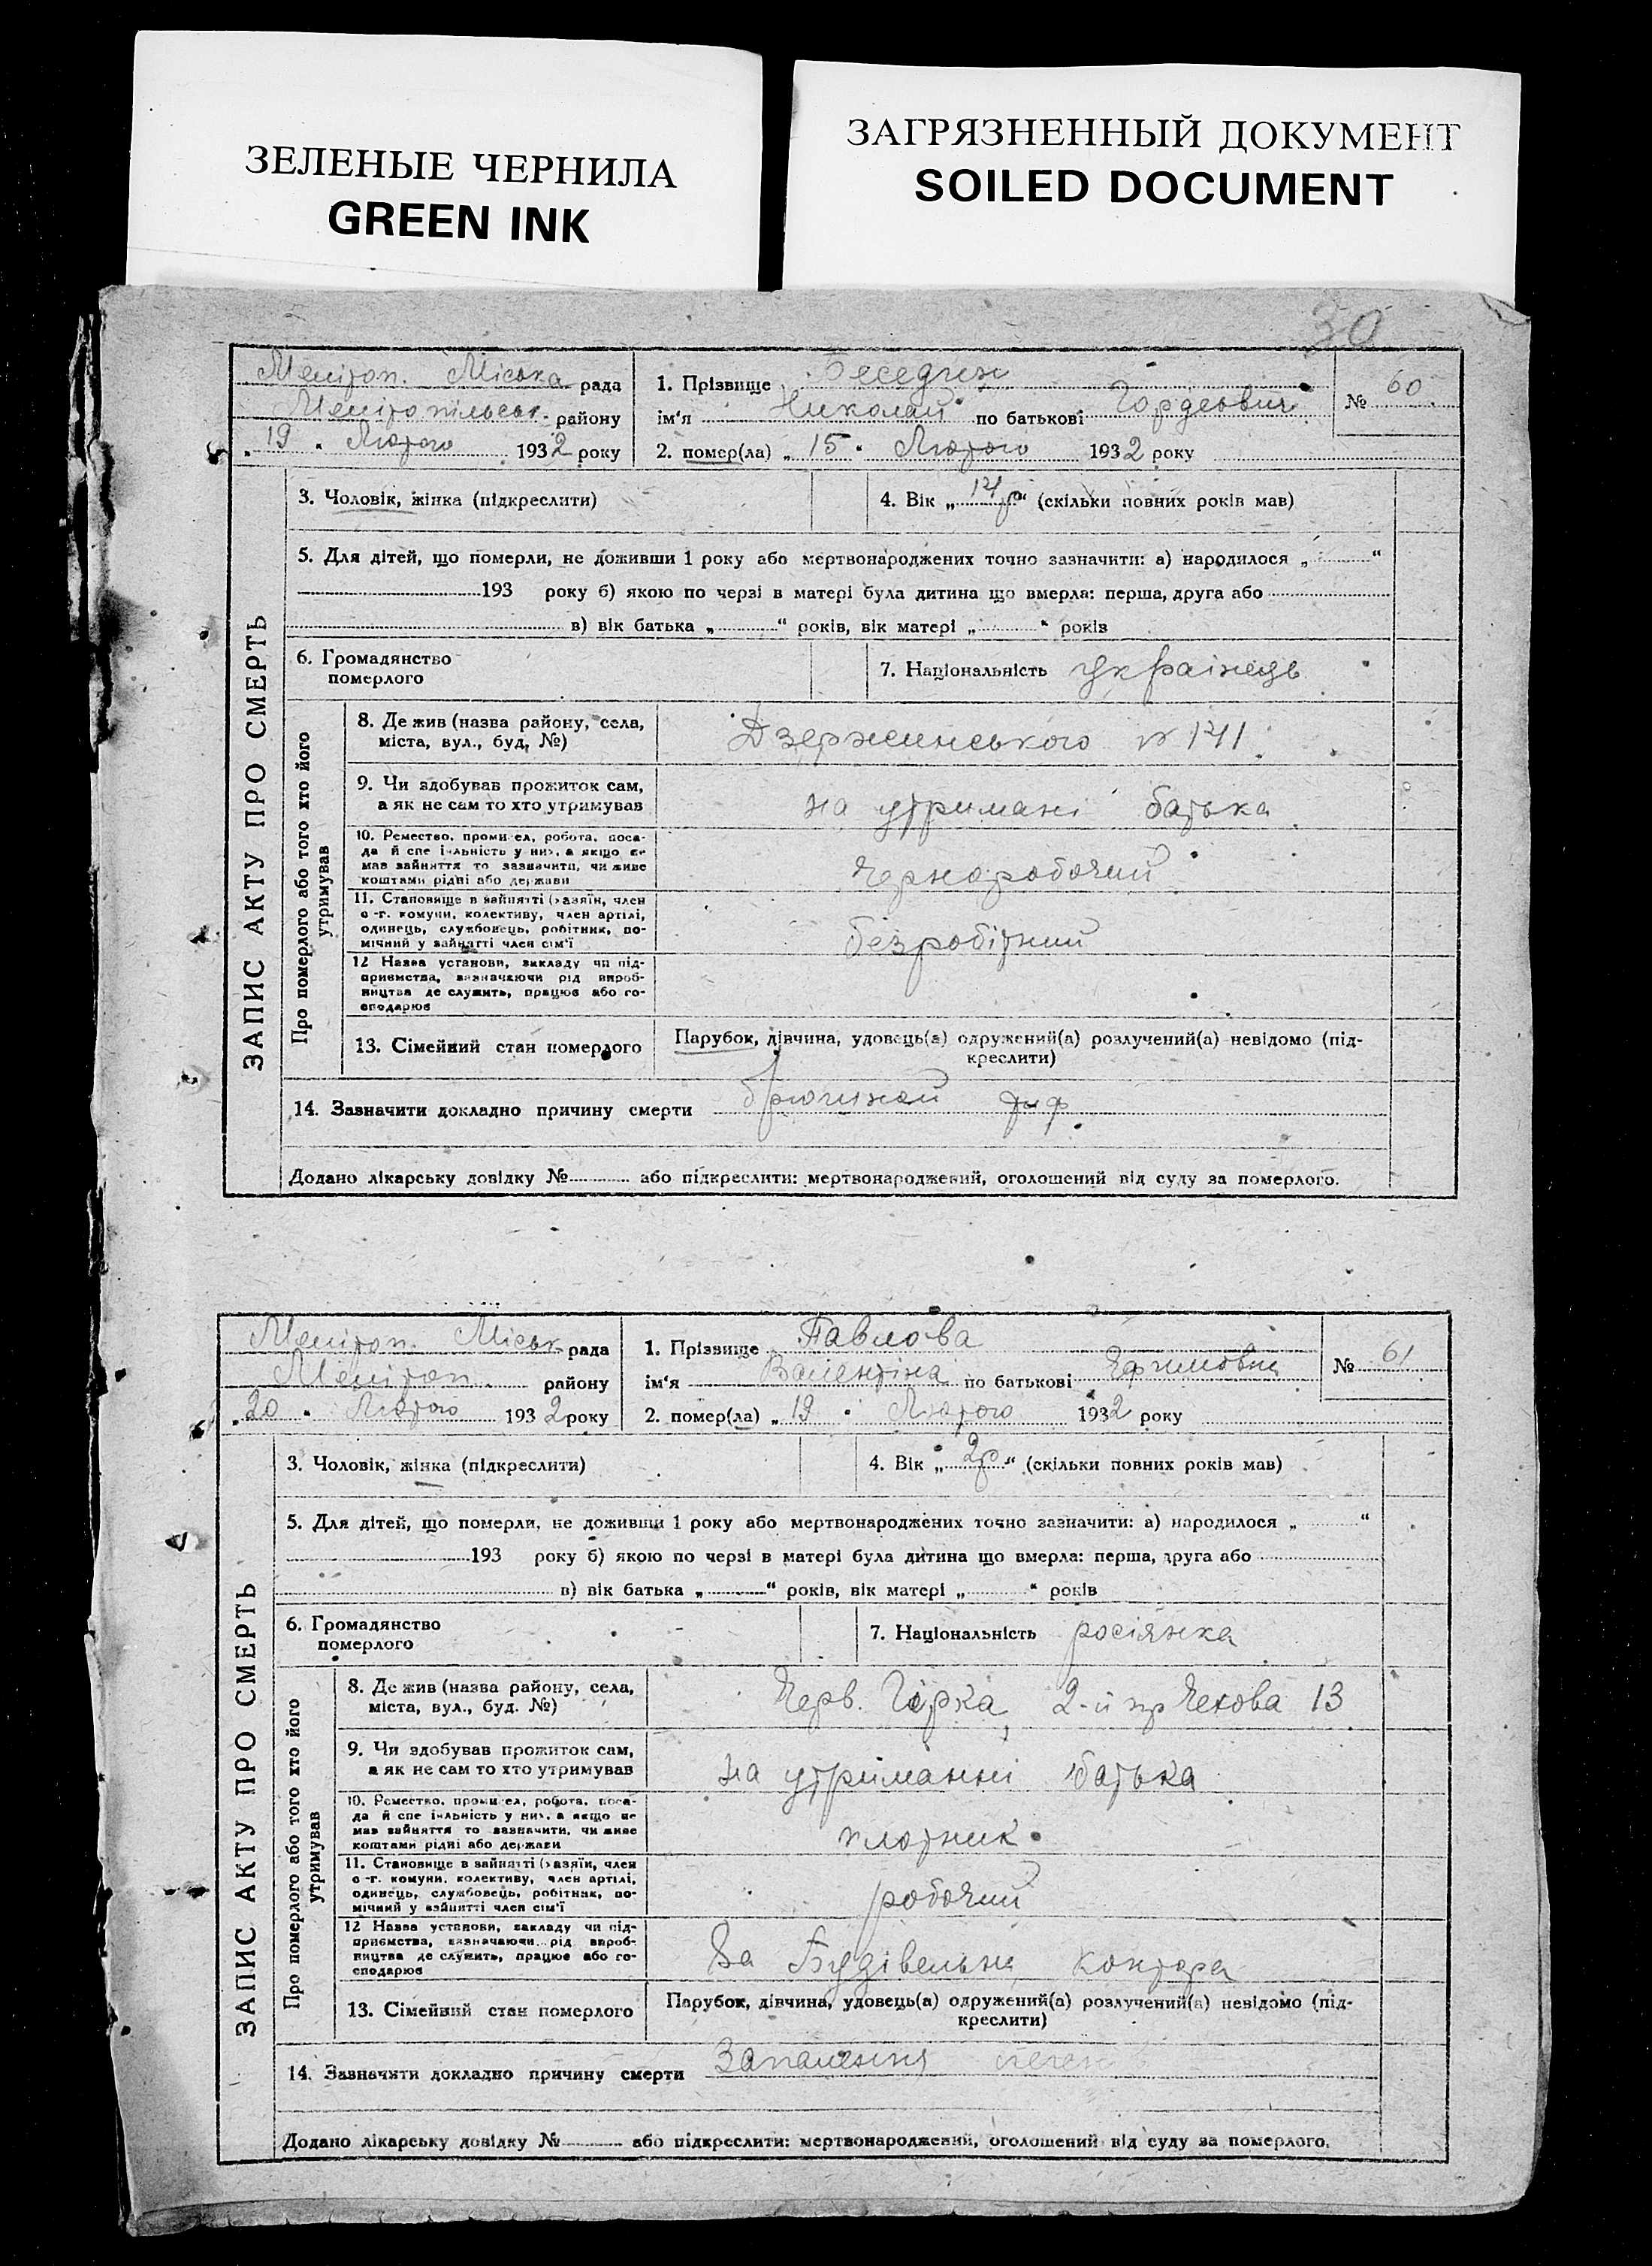 ЗЕЛЕНЫЕ ЧЕРНИЛА
GREEN INK
ЗАГРЯЗНЕННЫЙ ДОКУМЕНТ
SOILED DOCUMENT
30
ЗАПИС АКТУ ПРО СМЕРТЬ
Мелітоп. Міська рада
Мелітопільськ. району
„19" Лютого 1932 року
1. Прізвище Беседин
ім'я Николай по батькові Гордеович
№ 60
2. помер(ла) „15" Лютого 1932 року
3. Чоловік, жінка (підкреслити)
4. Вік „14р" (скільки повних років мав)
5. Для дітей, що померли, не доживши 1 року або мертвонароджених точно зазначити: а) народилося „ "
193 року б) якою по черзі в матері була дитина що вмерла: перша, друга або
в) вік батька „ " років, вік матері „ " років
6. Громадянство
померлого
7. Національність українець
Про померлого або того хто його
утримував
8. Де жив (назва району, села,
міста, вул., буд. №)
Дзержинського № 141
9. Чи здобував прожиток сам,
а як не сам то хто утримував
на утримані батька
10. Ремество, промисел, робота, поса-
да й спеціяльність у них, а якщо не
мав зайняття то зазначити, чи живе
коштами рідні або держави
Чернорабочий
11. Становище в зайнятті (хазяїн, член
с-г. комуни, колективу, член артілі,
одинець, службовець, робітник, по-
мічний у зайнятті член сім'ї
безробітний
12 Назва установи, закладу чи під-
приємства, зазначаючи рід вироб-
ництва де служить, працює або го-
сподарює
13. Сімейний стан померлого
Парубок, дівчина, удовець(а) одружений(а) розлучений(а) невідомо (під-
креслити)
14. Зазначити докладно причину смерти брюшной тиф
Додано лікарську довідку № або підкреслити: мертвонароджений, оголошений від суду за померлого.
ЗАПИС АКТУ ПРО СМЕРТЬ
Мелітоп. Міськ рада
Мелітоп. району
„20" Лютого 1932 року
1. Прізвище Павлова
ім'я Валентіна по батькові Ефимовна
№ 61
2. помер(ла) „19" Лютого 1932 року
3. Чоловік, жінка (підкреслити)
4. Вік „2р" (скільки повних років мав)
5. Для дітей, що померли, не доживши 1 року або мертвонароджених точно зазначити: а) народилося „ "
193 року б) якою по черзі в матері була дитина що вмерла: перша, друга або
в) вік батька „ " років, вік матері „ " років
6. Громадянство
померлого
7. Національність росіянка
Про померлого або того хто його
утримував
8. Де жив (назва району, села,
міста, вул., буд. №)
Черв. Гірка, 2-й пр Чехова 13
9. Чи здобував прожиток сам,
а як не сам то хто утримував
на утриманні батька
10. Ремество, промисел, робота, поса-
да й спеціяльність у них, а якщо не
мав зайняття то зазначити, чи живе
коштами рідні або держави
плотник
11. Становище в зайнятті (хазяїн, член
с-г. комуни, колективу, член артілі,
одинець, службовець, робітник, по-
мічний у зайнятті член сім'ї
робочий
12 Назва установи, закладу чи під-
приємства, зазначаючи рід вироб-
ництва де служить, працює або го-
сподарює
Будівельна контора
13. Сімейний стан померлого
Парубок, дівчина, удовець(а) одружений(а) розлучений(а) невідомо (під-
креслити)
14. Зазначити докладно причину смерти Запалення
Додано лікарську довідку № або підкреслити: мертвонароджений, оголошений від суду за померлого.